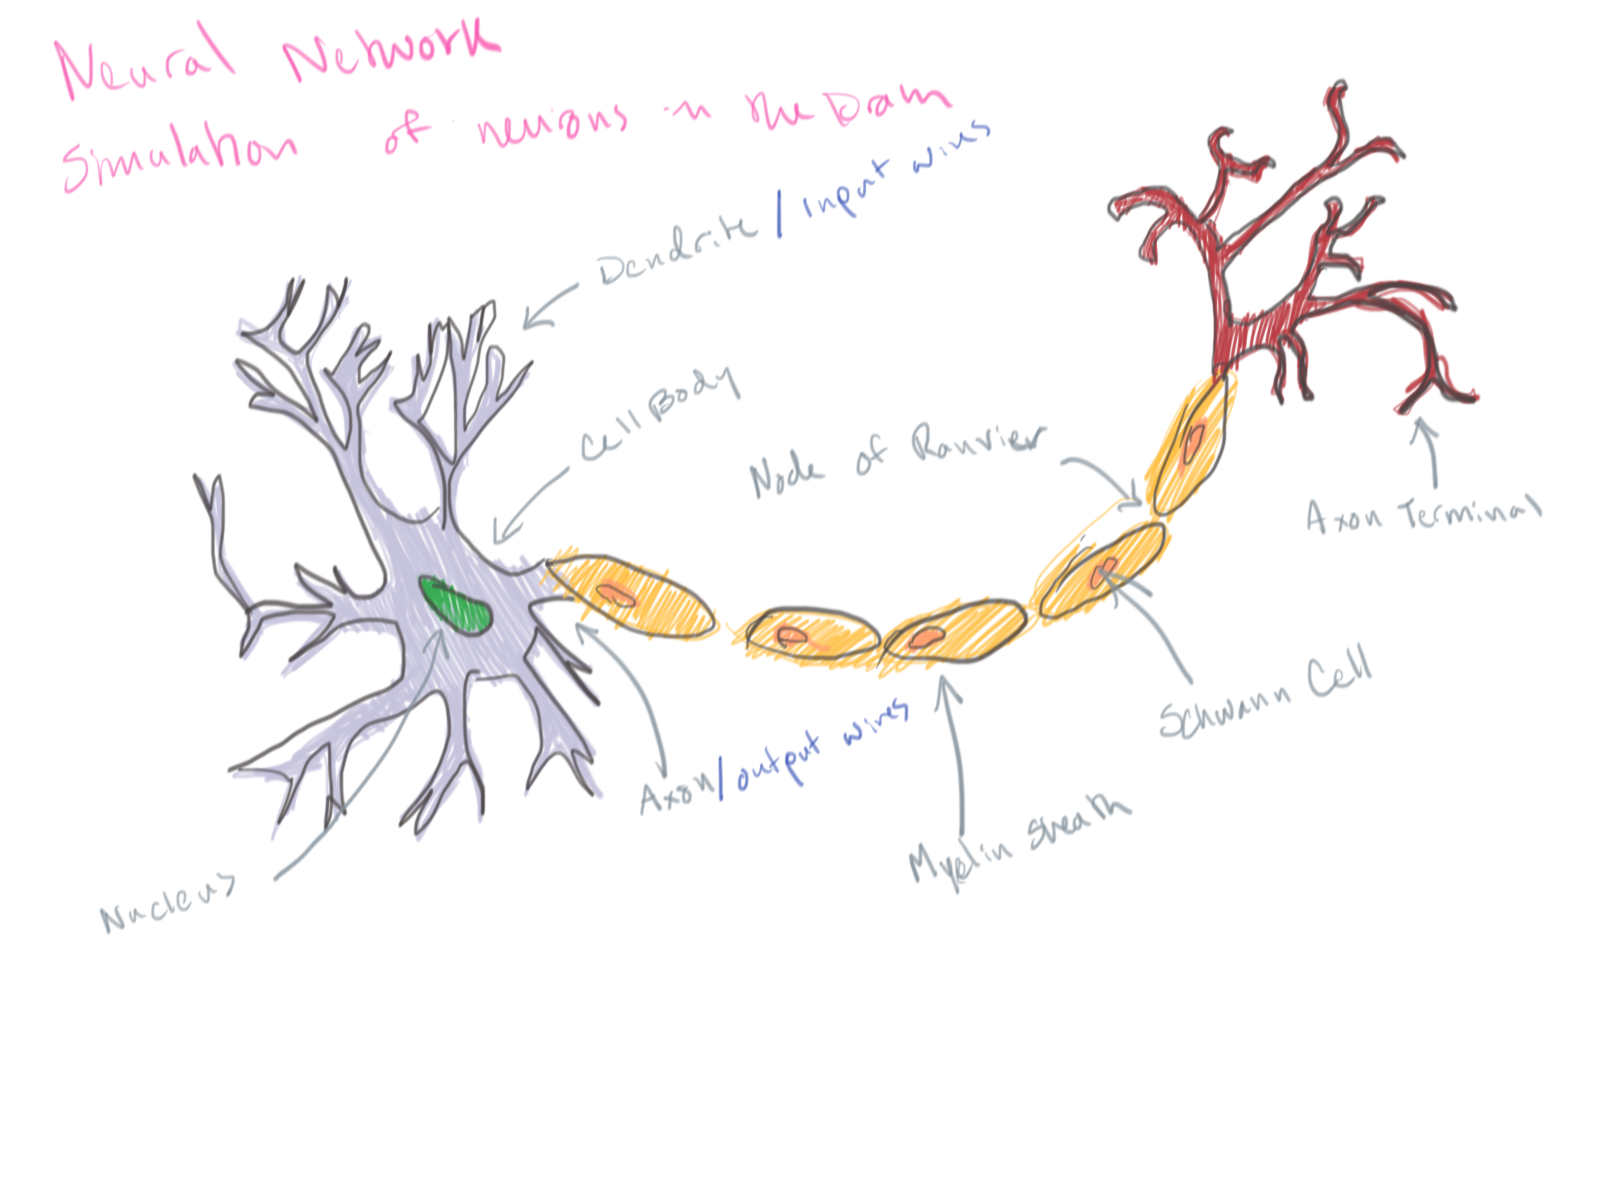 Neural Network
Simulation of neurons in the Brain
Dendrite / input wires
Cell Body
Node of Ranvier
Axon Terminal
Schwann Cell
Axon / output wires
Myelin Sheath
Nucleus